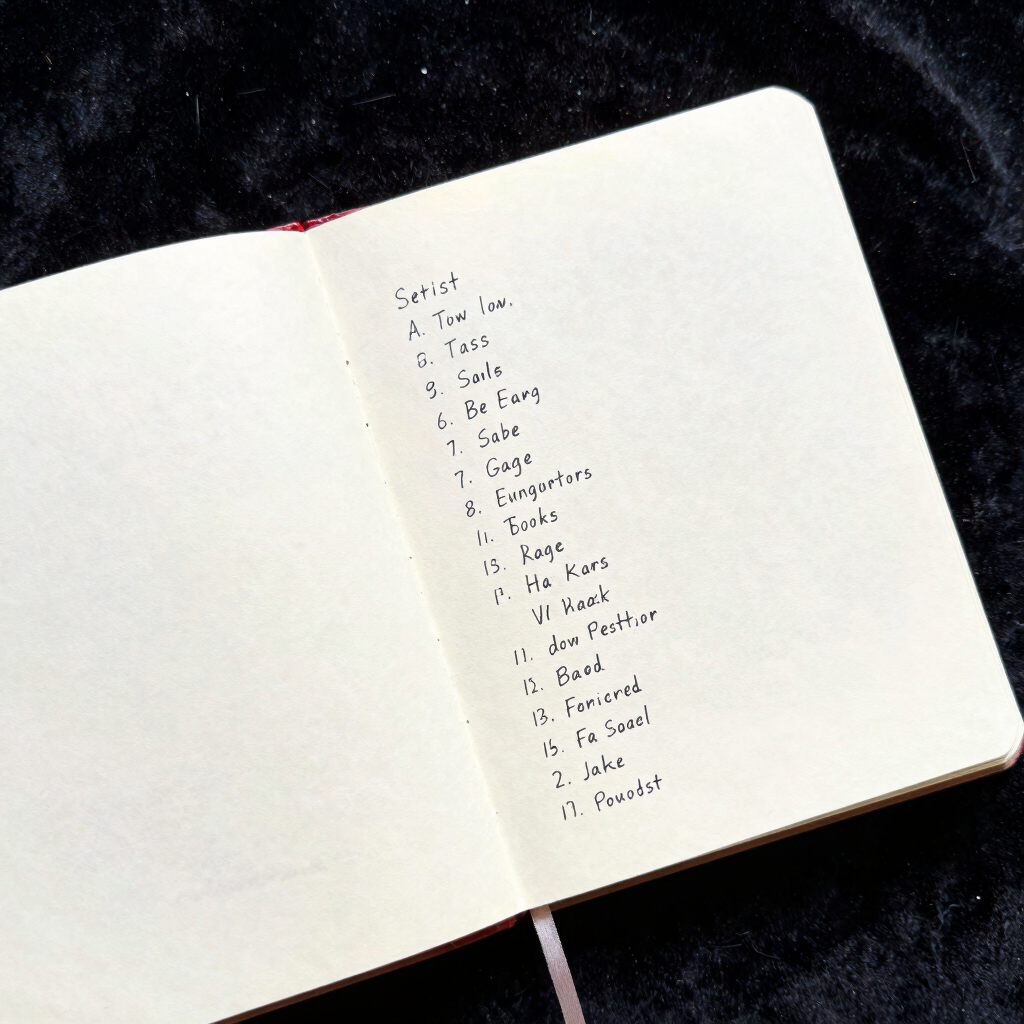 Setist
A. Tow low.
8. Tass
9. Sails
6. Be Earg
7. Sabe
7. Gage
8. Eungortors
11. Books
13. Rage
1?. Ha Kars
VI Kaak
11. dow Pesttior
12. Baod
13. Fonicred
15. Fa Soael
2. Jake
17. Pouodst